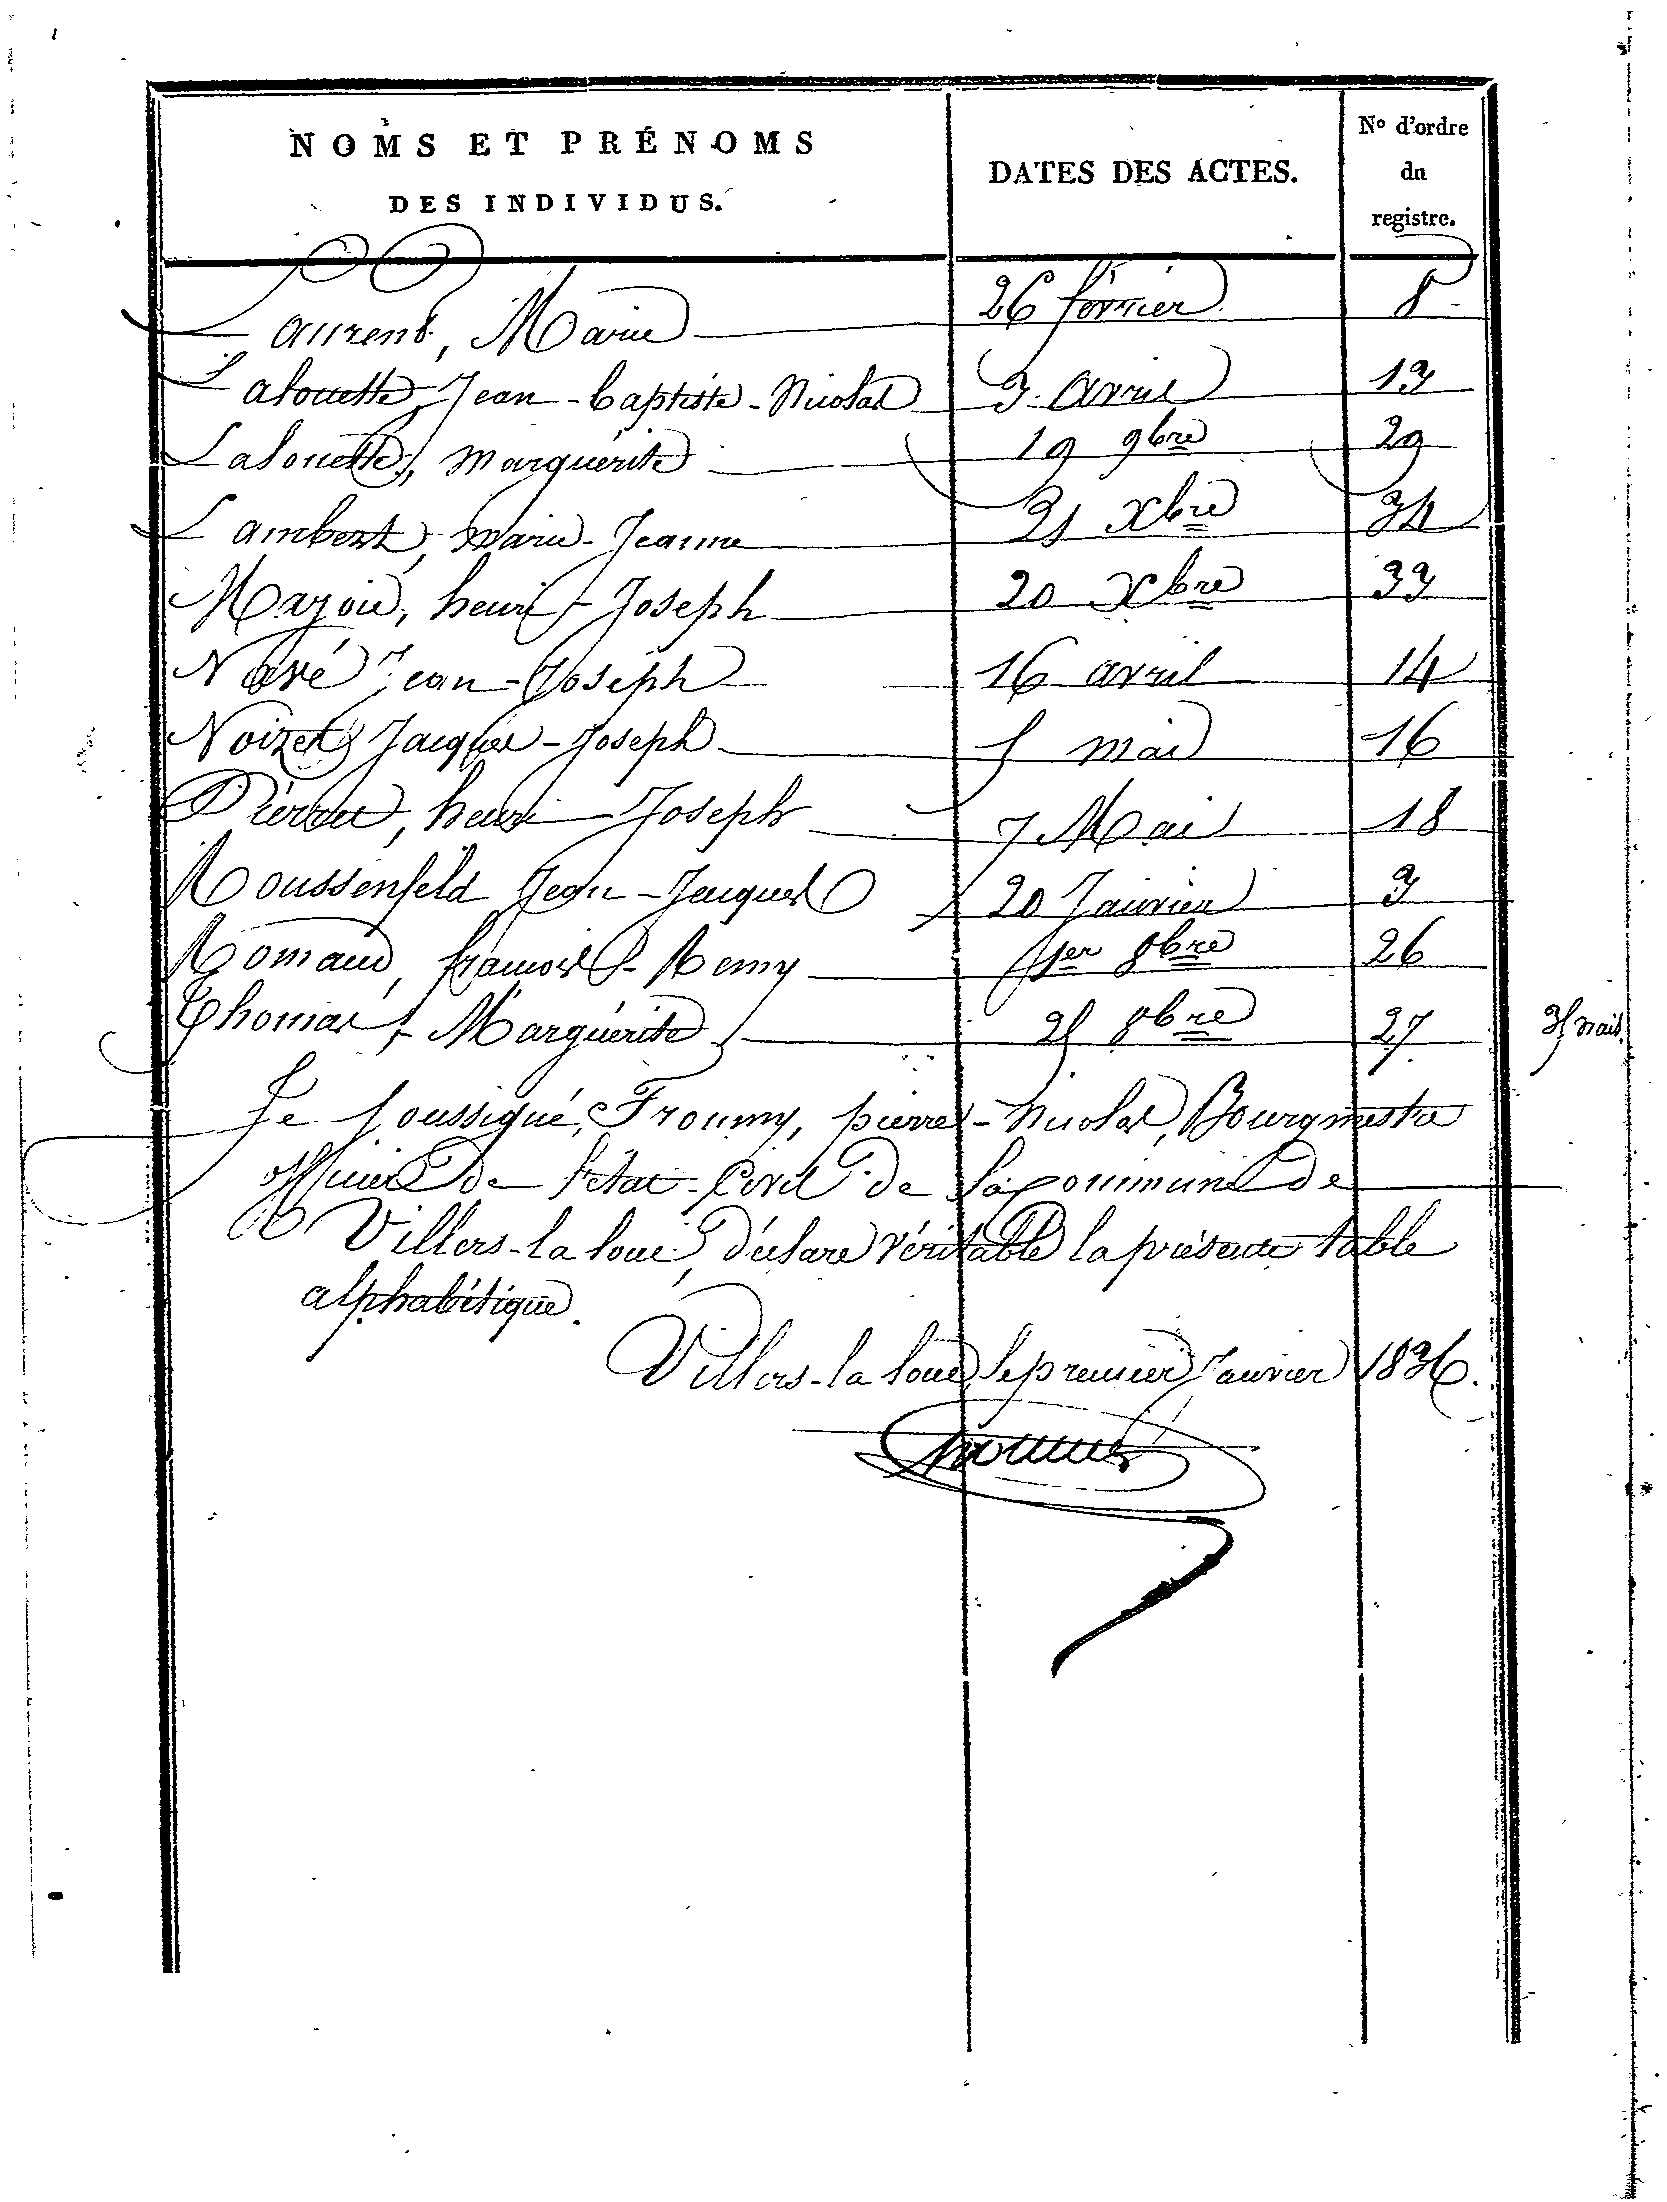 NOMS ET PRÉNOMS
DES INDIVIDUS.
DATES DES ACTES.
No d'ordre
du
registre.
Laurent, Marie 26 février 8
Lalouette, Jean-baptiste-Nicolas 3 avril 13
Lalouette, Marguérite 19 9bre 29
Lambert, Marie-Jeanne 21 Xbre 34
henri-Joseph 20 Xbre 33
Navé Jean-Joseph 16 avril 14
Noizet Jacques-Joseph 5 mai 16
Pierret, henri-Joseph 7 Mai 18
Roussenfeld Jean-Jacques 20 Janvier 3
françois-Remy 1er 8bre 26
Thomas, Marguérite 25 8bre 27
35 nais.
Je Soussigné, Froumy, pierre-Nicolas, Bourgmestre
officier de l'état-Civil de la commune de
Villers-la loue, déclare véritable la présente table
alphabétique.
Villers-la loue, le premier Janvier 1836.
Froumy